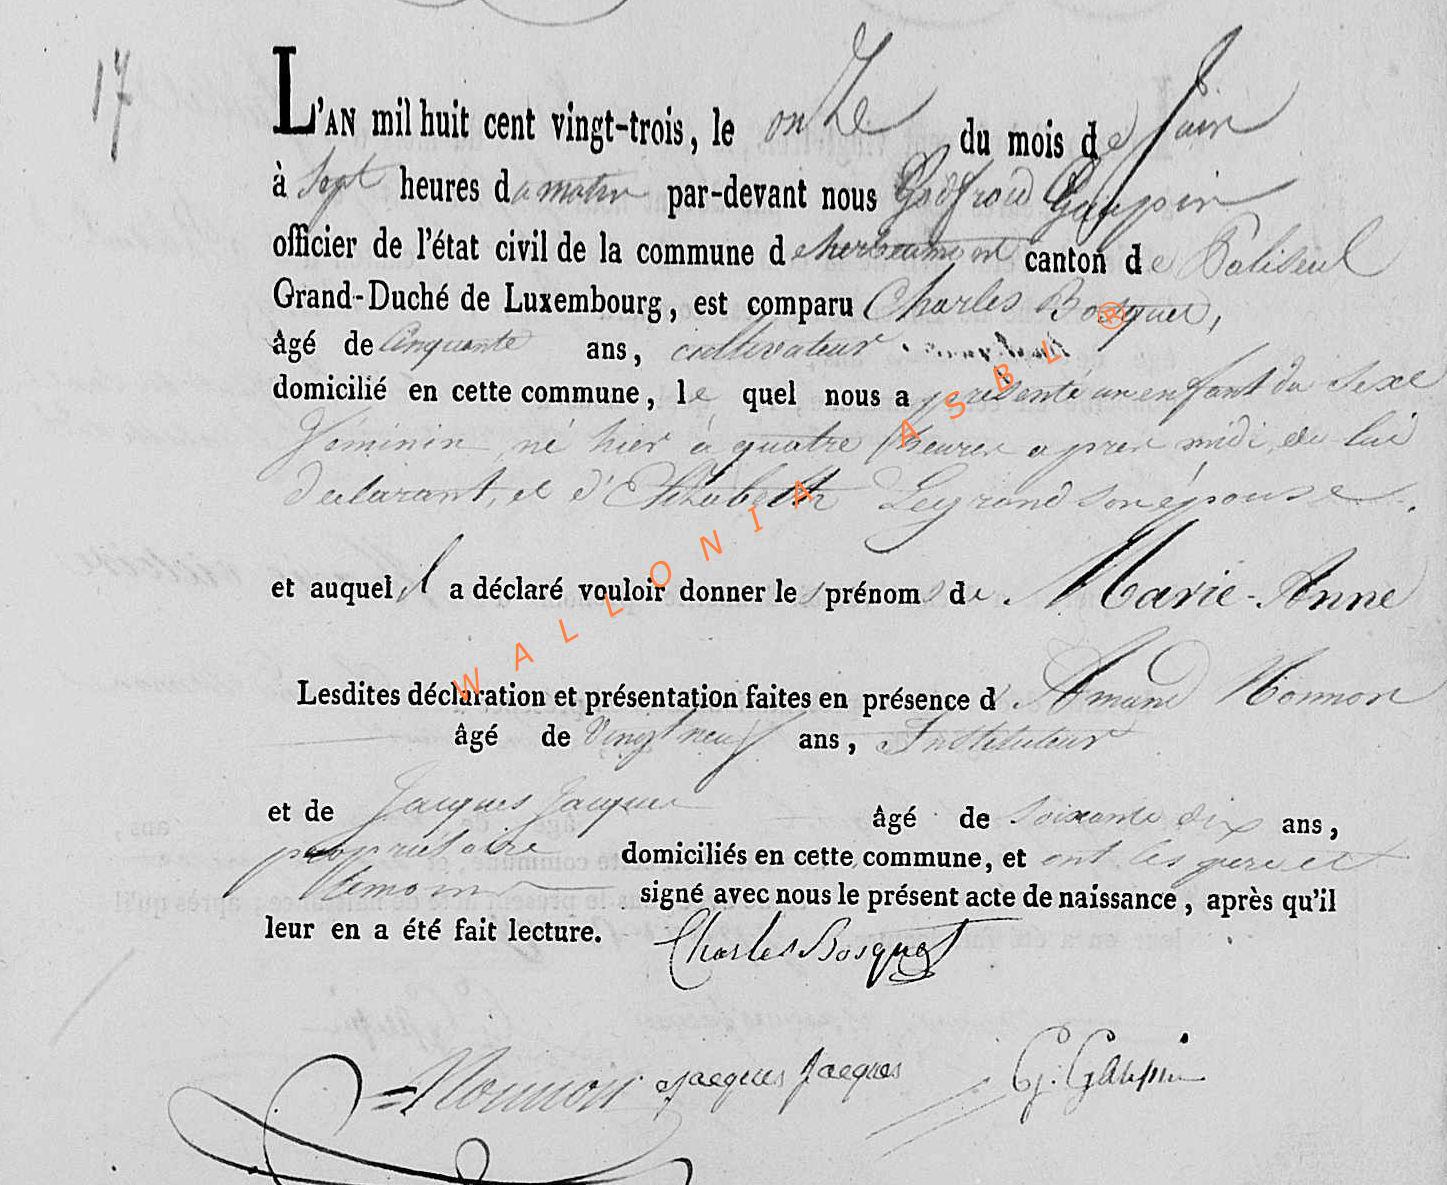 17
L'AN mil huit cent vingt-trois, le onze du mois de Juin
à Sept heures du matin par-devant nous Godfroid Gaupin
officier de l'état civil de la commune d'herbeumont canton de Paliseul
Grand-Duché de Luxembourg, est comparu Charles Bosquet,
âgé de Cinquante ans, cultivateur
domicilié en cette commune, le quel nous a présenté un enfant du Sexe
féminin né hier à quatre heures apres midi, de lui
declarant, et d'Elizabeth Legrand son épouse.
et auquel il a déclaré vouloir donner les prénoms de Marie-Anne
Lesdites déclaration et présentation faites en présence d'Amand Monnon
âgé de Vingt neuf ans, Instituteur
et de Jacques Jacques âgé de Soixante dix ans,
propriétaire domiciliés en cette commune, et ont les pere et
temoins signé avec nous le présent acte de naissance, après qu'il
leur en a été fait lecture.
Charles Bosquet
Monnon Jacques Jacques G. Gaupin
WALLONIA ASBL ®